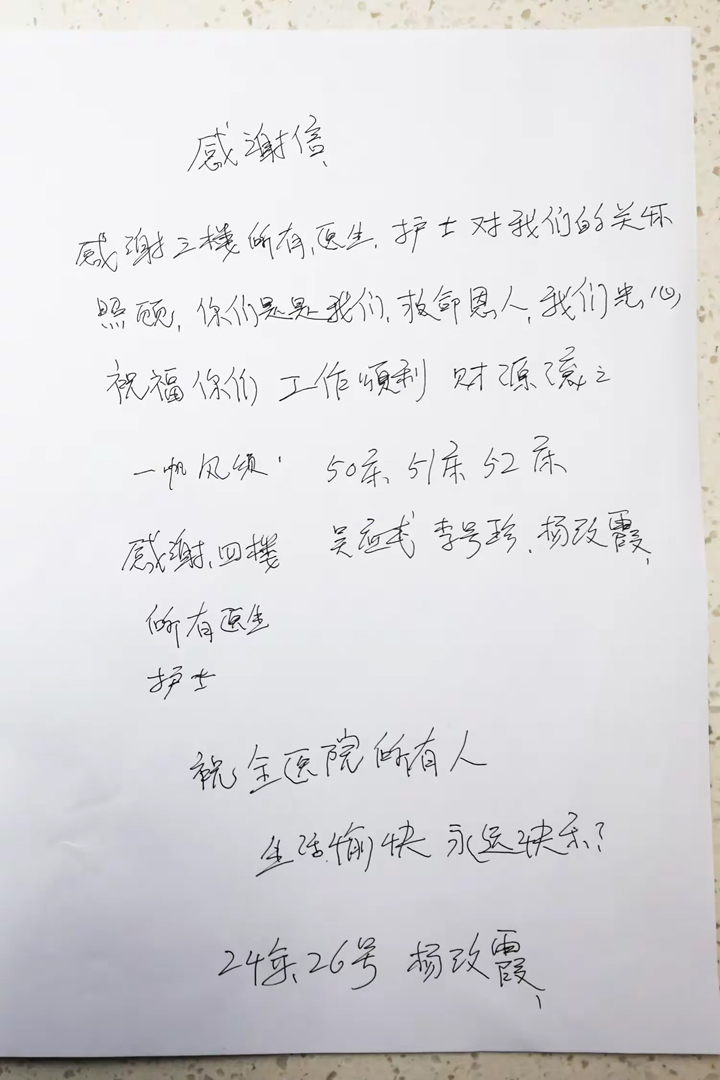 感谢信
感谢三楼所有医生.护士对我们的关怀
照顾,你们是是我们,救命恩人,我们忠心
祝福你们 工作顺利 财源滚之
一帆风顺 50床 51床 52床
感谢四楼 吴应武 李号珍、杨改霞
所有医生
护士
祝全医院所有人
生活愉快 永远快乐
24年26号 杨改霞